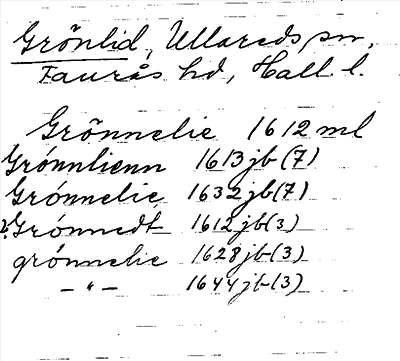 Grönlid, Ullareds sn,
Faurås hd, Hall. l.
Grönnelie 1612 ml
Grónnlienn 1613 jb (7)
Grónnelie 1632 jb (7)
?Grónnedt 1612 jb (3)
grónnelie 1628 jb (3)
— " — 1644 jb (3)